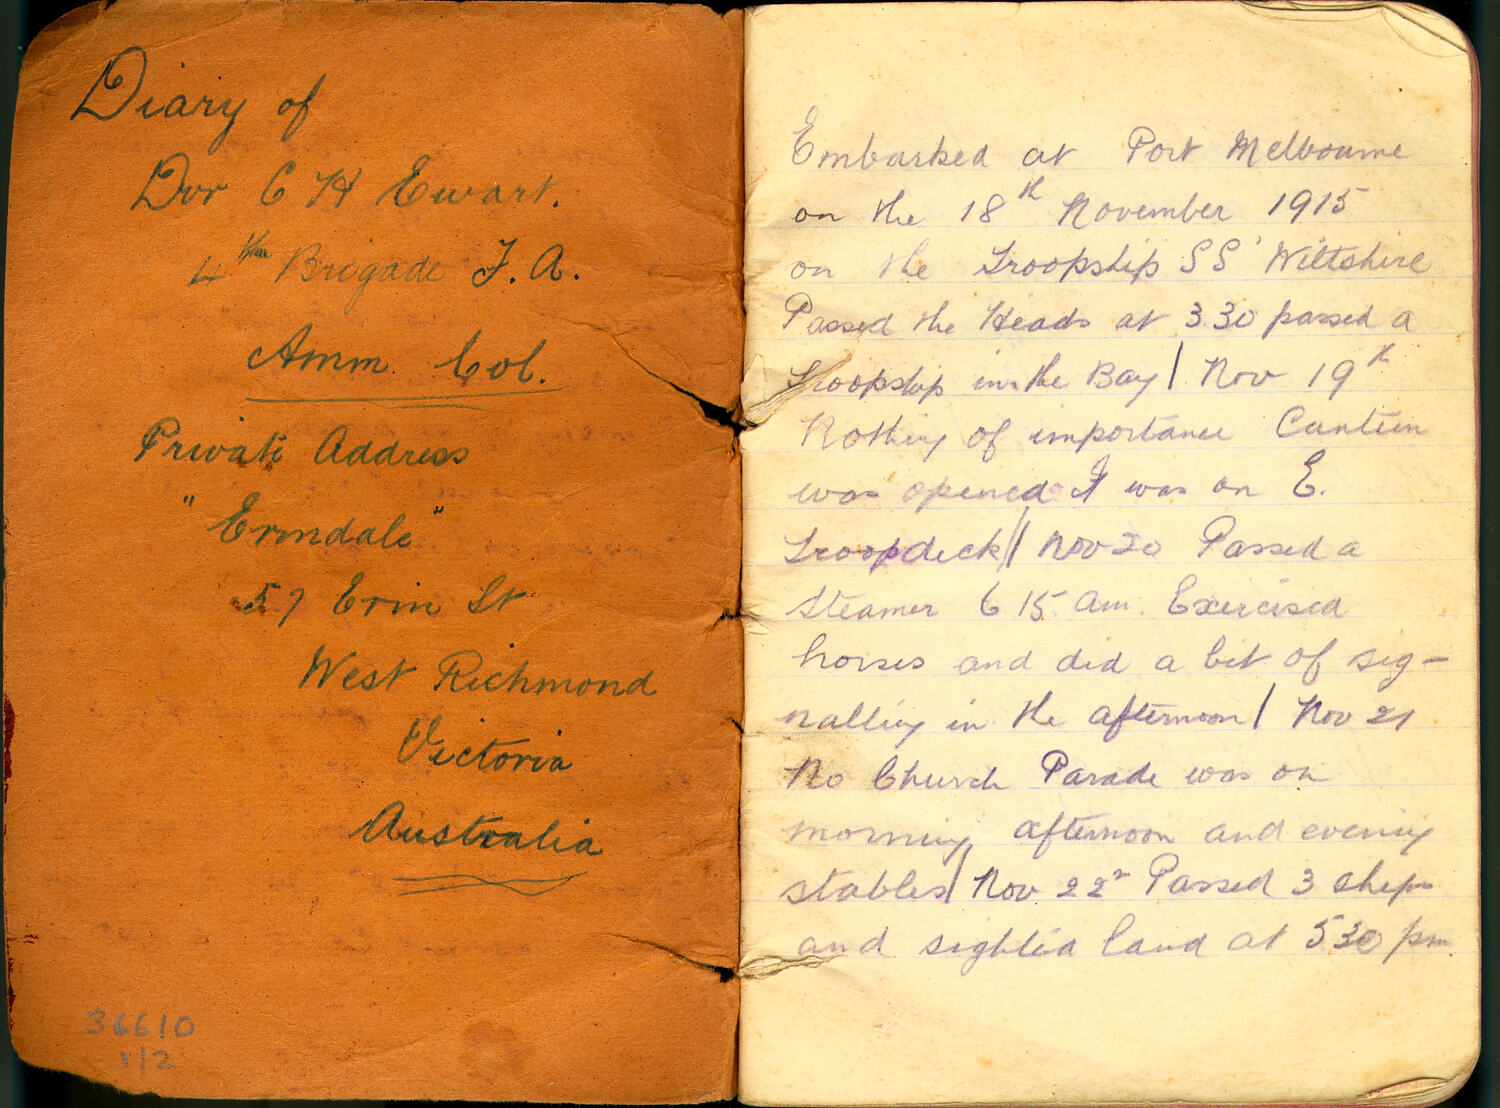 Diary of
Dvr C H Ewart.
4th Brigade F. A.
Amm. Col.
Private Address
"Erindale"
57 Erin St
West Richmond
Victoria
Australia
36610
1/2
Embarked at Port Melbourne
on the 18th November 1915
on the Troopship SS 'Wiltshire
Passed the Heads at 3.30 passed a
Troopship in the Bay / Nov 19th
Nothing of importance Canteen
was opened I was on E.
Troopdeck // Nov 20 Passed a
steamer 6 15 am. Exercised
horses and did a bit of sig-
nalling in the afternoon / Nov 21
No Church Parade was on
morning afternoon and evening
stables / Nov 22n Passed 3 ships
and sighted land at 530 pm.